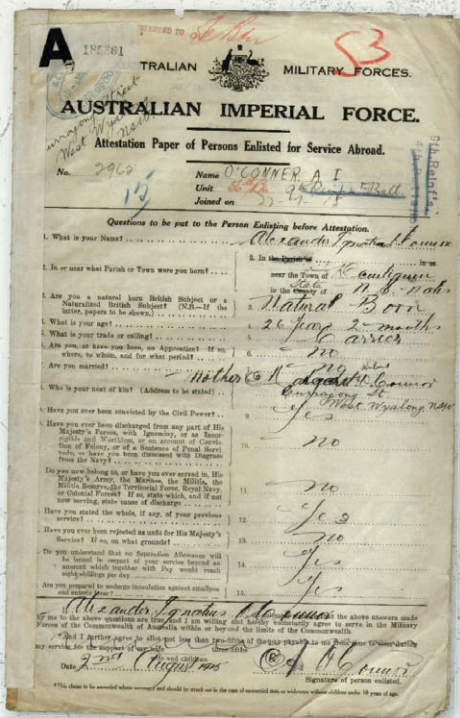 A
53
TRALIAN MILITARY FORCES.
AUSTRALIAN IMPERIAL FORCE.
Attestation Paper of Persons Enlisted for Service Abroad.
West Wyalong
NSW
No. 2962
Name O'CONNER A I
Unit
Joined on
Questions to be put to the Person Enlisting before Attestation.
1. What is your Name?
Alexander Ignatius O'Connor
2. In or near what Parish or Town were you born?
2. In the Parish of in or
near the Town of
in the County of
State N. S. Wales
3. Are you a natural born British Subject or a
Naturalized British Subject? (N.B.—If the
latter, papers to be shown.)
3. Natural Born
4. What is your age?
4. 26 years 2 months
5. What is your trade or calling?
5. Carrier
6. Are you, or have you been, an Apprentice? If so,
where, to whom, and for what period?
6. no
7. Are you married?
no
8. Who is your next of kin? (Address to be stated)
mother O'Connor
St
West Wyalong NSW
9. Have you ever been convicted by the Civil Power?
9. Yes
10. Have you ever been discharged from any part of His
Majesty's Forces, with Ignominy, or as Incor-
rigible and Worthless, or on account of Convic-
tion of Felony, or of a Sentence of Penal Servi-
tude, or have you been dismissed with Disgrace
from the Navy?
10. no
Do you now belong to, or have you ever served in, His
Majesty's Army, the Marines, the Militia, the
Militia Reserve, the Territorial Force, Royal Navy
or Colonial Forces? If so, state which, and if not
now serving, state cause of discharge
11. no
Have you stated the whole, if any, of your previous
service?
12. Yes
Have you ever been rejected as unfit for His Majesty's
Service? If so, on what grounds?
13. no
Do you understand that no Separation Allowance will
be issued in respect of your service beyond an
amount which together with Pay would reach
eight shillings per day
14. Yes
Are you prepared to undergo inoculation against smallpox
and enteric fever?
15. Yes
Alexander Ignatius O'Connor
the above answers made
by me to the above questions are true, and I am willing and hereby voluntarily agree to serve in the Military
Forces of the Commonwealth of Australia within or beyond the limits of the Commonwealth.
And I further agree to allot not less than two-fifths of the pay payable to me from time to time during
my service for the support of my wife
three-fifths
and children
Date 2nd August 1915
A I O'Connor
Signature of person enlisted.